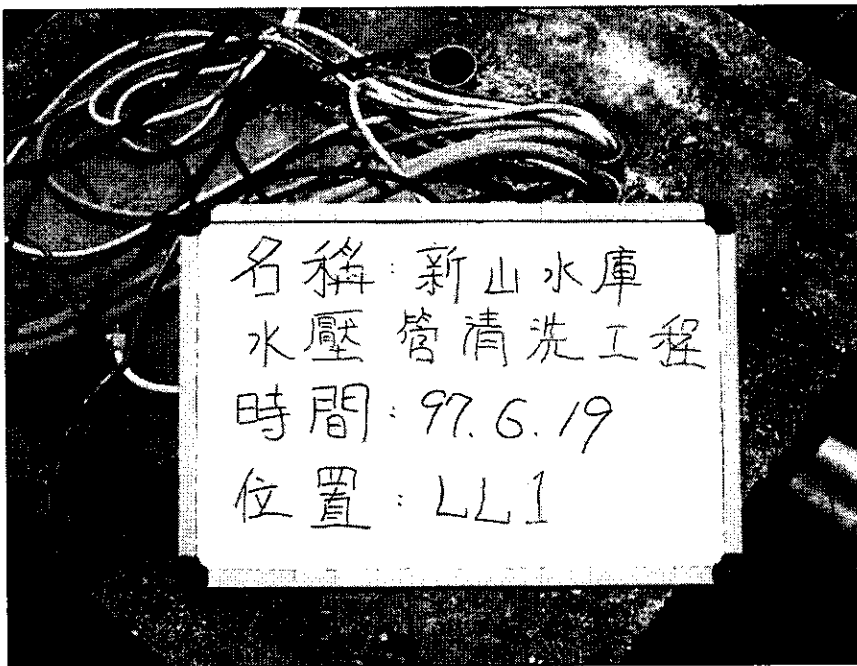 名稱：新山水庫
水壓管清洗工程
時間：97.6.19
位置：LL1